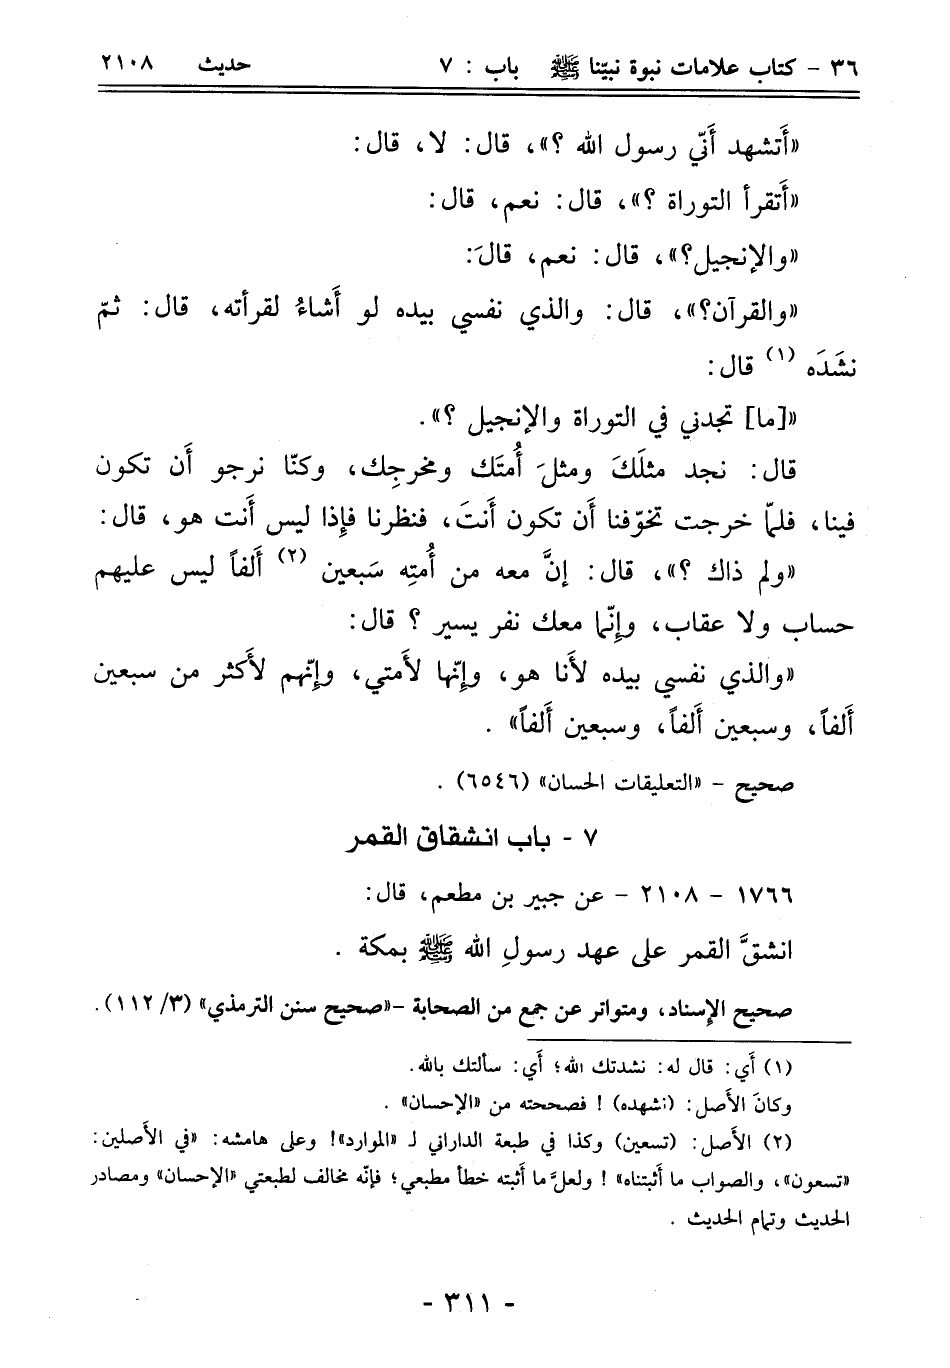 ٣٦ - كتاب علامات نبوة نبيّنا ﷺ باب : ٧ حديث ٢١٠٨
«أَتشهد أَنّي رسول الله ؟»، قال: لا، قال:
«أَتقرأ التوراة ؟»، قال: نعم، قال:
«والإنجيل؟»، قال: نعم، قالَ:
«والقرآن؟»، قال: والذي نفسي بيده لو أَشاءُ لقرأته، قال: ثمّ
نشَدَه (١) قال:
«[ما] تجدني في التوراة والإنجيل ؟».
قال: نجد مثلَكَ ومثلَ أُمتَك ومخرجِك، وكنّا نرجو أَن تكون
فينا، فلمّا خرجت تخوّفنا أَن تكون أَنتَ، فنظرنا فإِذا ليس أَنت هو، قال:
«ولم ذاك ؟»، قال: إنَّ معه من أُمتِه سَبعين (٢) أَلفاً ليس عليهم
حساب ولا عقاب، وإِنّما معك نفر يسير ؟ قال:
«والذي نفسي بيده لأَنا هو، وإِنّها لأُمتي، وإِنّهم لأَكثر من سبعين
أَلفاً، وسبعين أَلفاً، وسبعين أَلفاً» .
صحيح - «التعليقات الحسان» (٦٥٤٦) .
٧ - باب انشقاق القمر
١٧٦٦ - ٢١٠٨ - عن جبير بن مطعم، قال:
انشقَّ القمر على عهد رسولِ الله ﷺ بمكة .
صحيح الإِسناد، ومتواتر عن جمع من الصحابة -«صحيح سنن الترمذي» (٣/ ١١٢).
(١) أَي: قال له: نشدتك الله؛ أَي: سألتك بالله.
وكانَ الأَصل: (أشهده) ! فصححته من «الإحسان» .
(٢) الأَصل: (تسعين) وكذا في طبعة الداراني لـ «الموارد»! وعلى هامشه: «في الأَصلين:
«تسعون»، والصواب ما أَثبتناه» ! ولعلَّ ما أَثبته خطأ مطبعي؛ فإنّه مخالف لطبعتي «الإحسان» ومصادر
الحديث وتمام الحديث .
- ٣١١ -